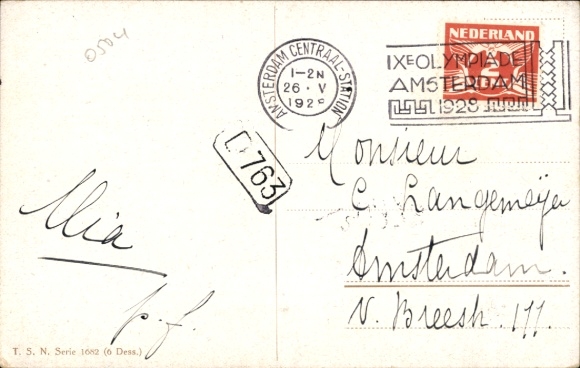 0504
NEDERLAND
AMSTERDAM CENTRAAL-STATION
1-2N
26·V
1928
IXE OLYMPIADE
AMSTERDAM
1928
763
Monsieur
C. Langemeyer
Amsterdam.
v. Breesh. 177.
Mia
p.f.
T. S. N. Serie 1682 (6 Dess.)